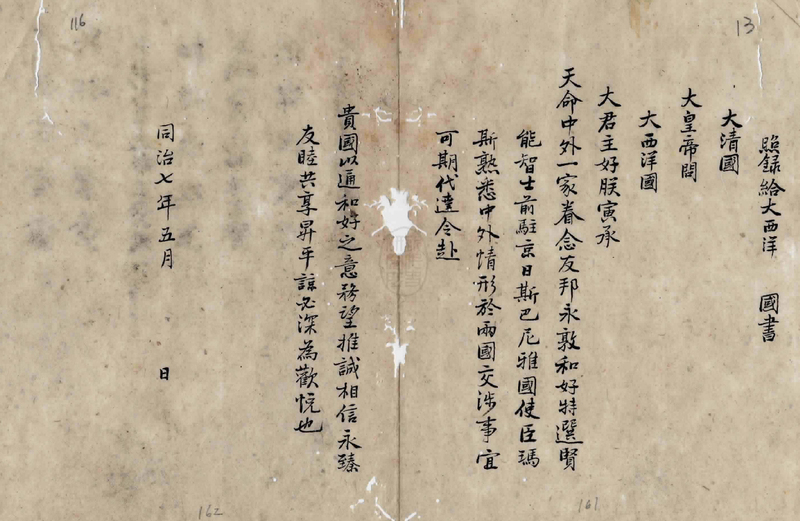 照錄給大西洋 國書
大清國
大皇帝問
大西洋國
大君主好朕寅承
天命中外一家眷念友邦永敦和好特選賢
能智士前駐京日斯巴尼雅國使臣瑪
斯熟悉中外情形於兩國交涉事宜
可期代達令赴
貴國以通和好之意務望推誠相信永臻
友睦共享昇平諒必深為歡悅也
同治七年五月 日
13
116
161
162